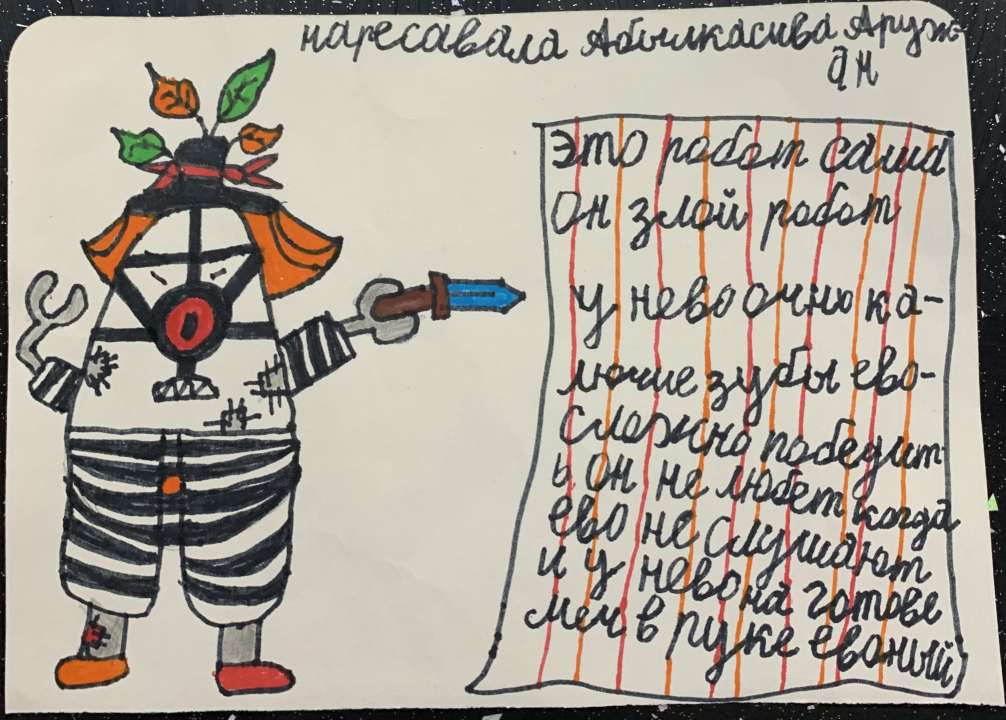 наресавала Абылкасива Аруж-
ан
это робот саша
Он злой робот
у нево очню ка-
лючие зубы ево-
Сложно победит
ь он не любет когда
ево не слушают
и у нево на готове
меч в руке евоный